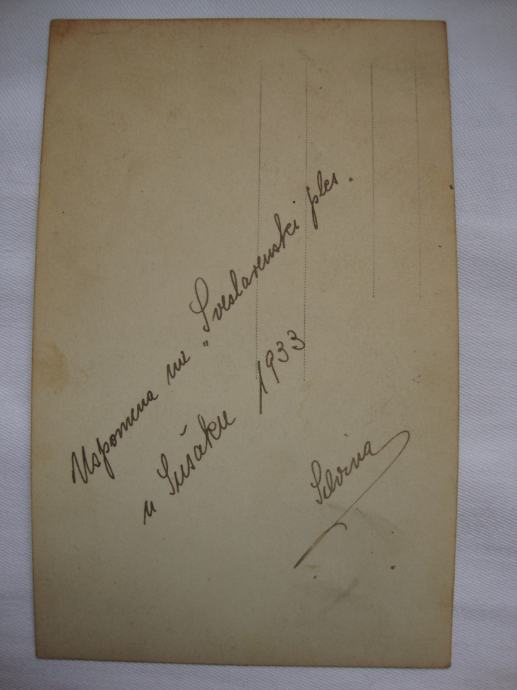 Uspomena na „Sveslavenski ples.
u Sušaku 1933
Silvina